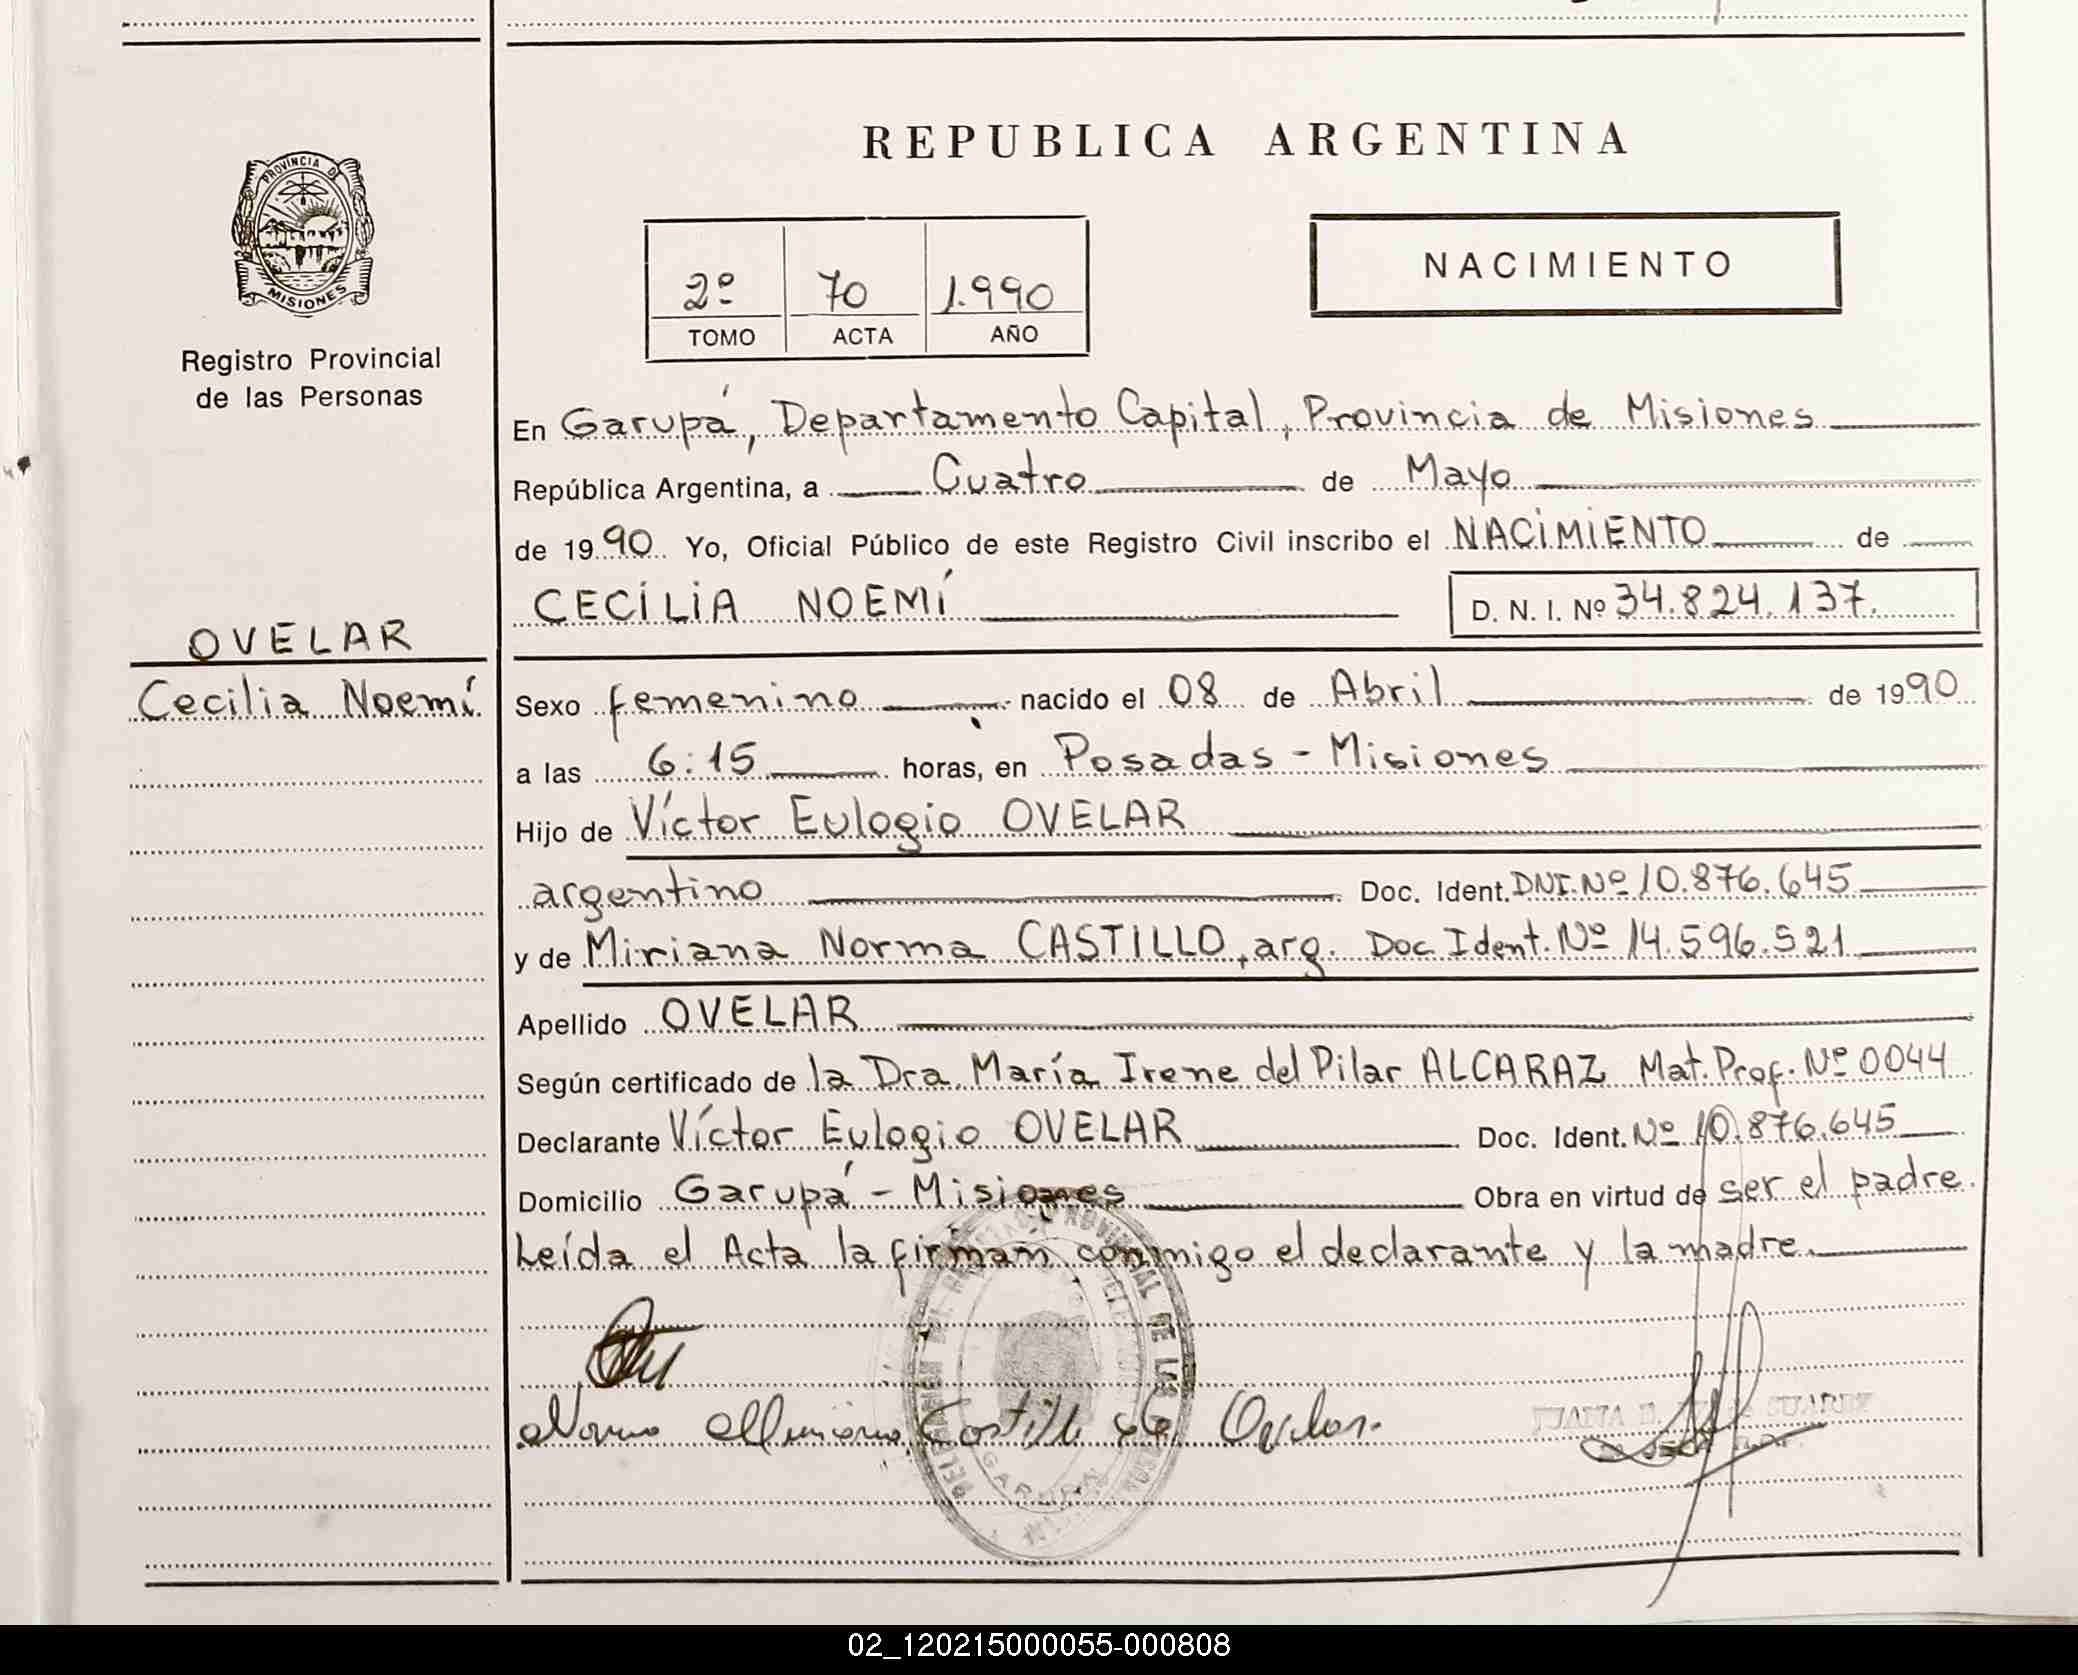 REPUBLICA ARGENTINA
PROVINCIA D
MISIONES
Registro Provincial
de las Personas
2º 70 1.990
TOMO ACTA AÑO
NACIMIENTO
En Garupá, Departamento Capital, Provincia de Misiones
República Argentina, a Cuatro de Mayo
de 1990 Yo, Oficial Público de este Registro Civil inscribo el NACIMIENTO de
CECILIA NOEMÍ D. N. I. Nº 34.824.137.
OVELAR
Cecilia Noemí
Sexo femenino nacido el 08 de Abril de 1990
a las 6:15 horas, en Posadas - Misiones
Hijo de Víctor Eulogio OVELAR
argentino Doc. Ident. DNI. Nº 10.876.645
y de Miriana Norma CASTILLO, arg. Doc Ident. Nº 14.596.521
Apellido OVELAR
Según certificado de la Dra. María Irene del Pilar ALCARAZ Mat. Prof. Nº 0044
Declarante Víctor Eulogio OVELAR Doc. Ident. Nº 10.876.645
Domicilio Garupá - Misiones Obra en virtud de ser el padre.
Leída el Acta la firman conmigo el declarante y la madre.
Castillo de Ovelar
GARUPA
02_120215000055-000808